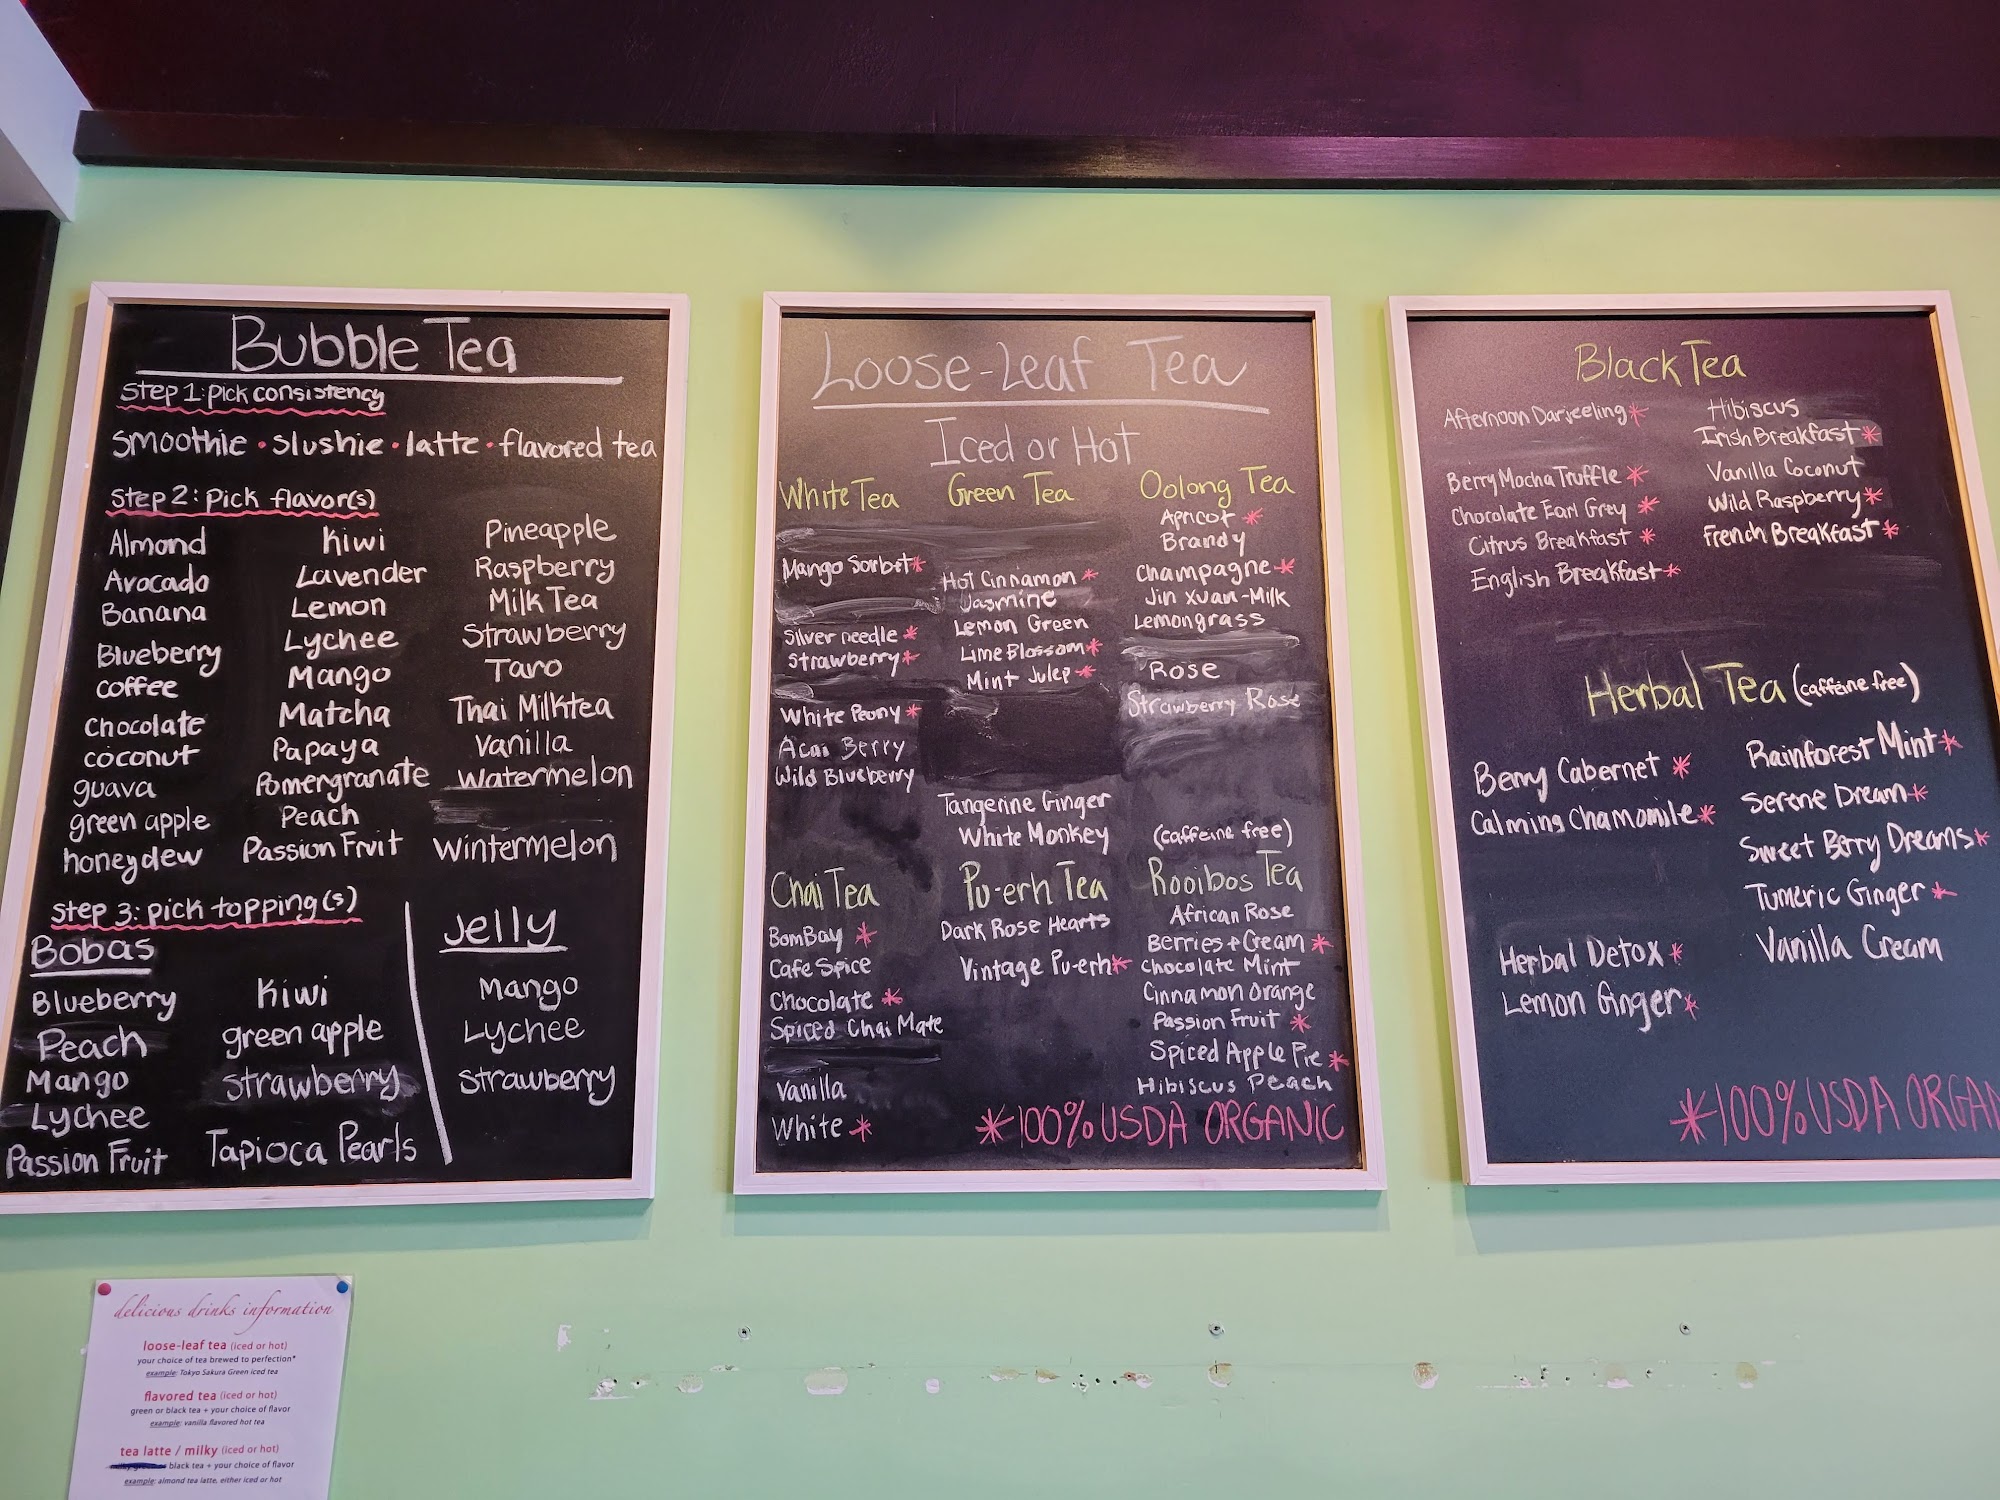 Bubble Tea
Step 1: pick consistency
smoothie • slushie • latte • flavored tea
Step 2: pick flavor(s)
Almond
Avocado
Banana
Blueberry
coffee
chocolate
coconut
guava
green apple
honeydew
Kiwi
Lavender
Lemon
Lychee
Mango
Matcha
Papaya
Pomergranate
Peach
Passion Fruit
Pineapple
Raspberry
Milk Tea
Strawberry
Taro
Thai Milktea
Vanilla
Watermelon
Wintermelon
Step 3: pick topping(s)
Bobas
Blueberry
Peach
Mango
Lychee
Passion Fruit
Kiwi
green apple
Strawberry
Tapioca Pearls
Jelly
Mango
Lychee
Strawberry
Loose-Leaf Tea
Iced or Hot
White Tea
Mango Sorbet*
Silver needle*
Strawberry*
White Peony*
Acai Berry
Wild Blueberry
Green Tea
Hot Cinnamon*
Jasmine
Lemon Green
Lime Blossom*
Mint Julep*
Tangerine Ginger
White Monkey
Oolong Tea
Apricot*
Brandy
Champagne*
Jin Xuan-Milk
Lemongrass
Rose
Strawberry Rose
Chai Tea
BomBay *
Cafe Spice
Chocolate *
Spiced Chai Mate
Vanilla
White *
Pu-erh Tea
Dark Rose Hearts
Vintage Pu-erh*
(caffeine free)
Rooibos Tea
African Rose
Berries + Cream *
Chocolate Mint
Cinnamon Orange
Passion Fruit *
Spiced Apple Pie*
Hibiscus Peach
*100% USDA ORGANIC
Black Tea
Afternoon Darjeeling*
Berry Mocha Truffle *
Chocolate Earl Grey *
Citrus Breakfast *
English Breakfast*
Hibiscus
Irish Breakfast*
Vanilla Coconut
Wild Raspberry*
French Breakfast*
Herbal Tea (caffeine free)
Berry Cabernet *
Calming Chamomile*
Herbal Detox*
Lemon Ginger*
Rainforest Mint*
Serene Dream*
Sweet Berry Dreams*
Tumeric Ginger*
Vanilla Cream
*100% USDA ORGAN
delicious drinks information
loose-leaf tea (iced or hot)
your choice of tea brewed to perfection*
example: Tokyo Sakura Green iced tea
flavored tea (iced or hot)
green or black tea + your choice of flavor
example: vanilla flavored hot tea
tea latte / milky (iced or hot)
black tea + your choice of flavor
example: almond tea latte, either iced or hot